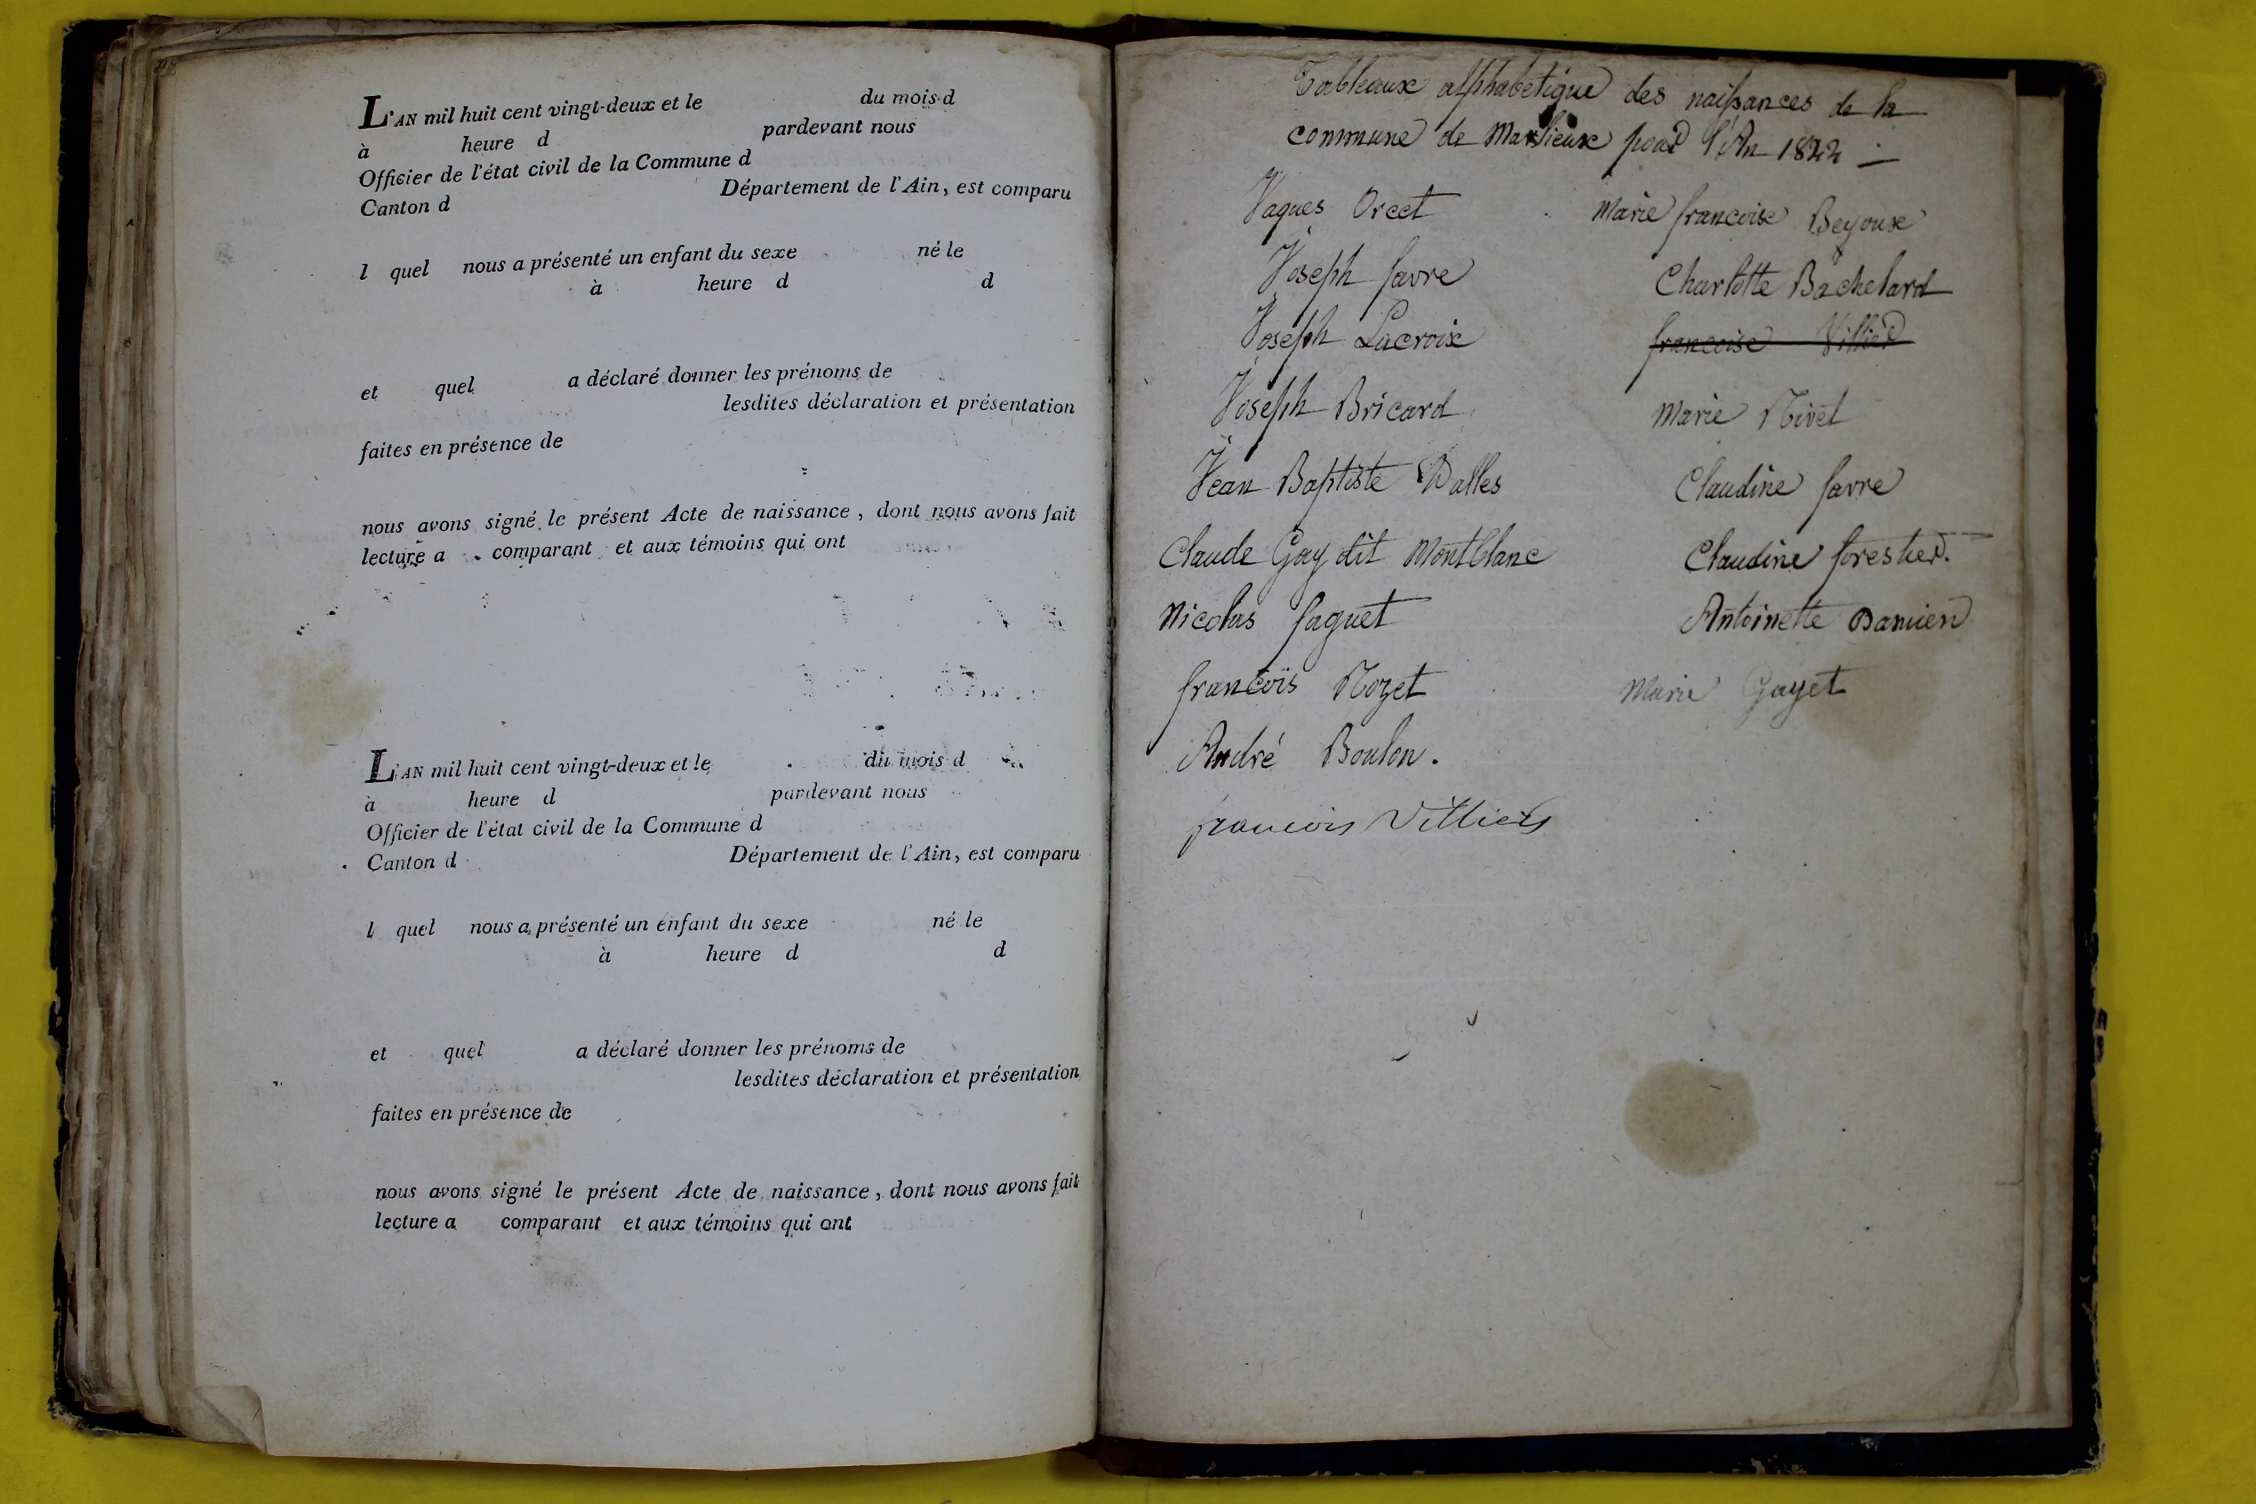 L'AN mil huit cent vingt-deux et le du mois d
à heure d pardevant nous
Officier de l'état civil de la Commune d
Canton d Département de l'Ain, est comparu
l quel nous a présenté un enfant du sexe né le
à heure d d
et quel a déclaré donner les prénoms de
lesdites déclaration et présentation
faites en présence de
nous avons signé le présent Acte de naissance, dont nous avons fait
lecture a comparant et aux témoins qui ont
L'AN mil huit cent vingt-deux et le du mois d
à heure d pardevant nous
Officier de l'état civil de la Commune d
Canton d Département de l'Ain, est comparu
l quel nous a présenté un enfant du sexe né le
à heure d d
et quel a déclaré donner les prénoms de
lesdites déclaration et présentation
faites en présence de
nous avons signé le présent Acte de naissance, dont nous avons fait
lecture a comparant et aux témoins qui ont
Tableaux alphabetique des naissances de la
commune de Marlieux pour l'An 1822
Jaques Orcet
Joseph favre
Joseph Lacroix
Joseph Bricard
Jean Baptiste Dalles
Claude Gay dit Montblanc
Nicolas faguet
francois Nozet
André Boulon.
francois Villiers
Marie francoise Beyoux
Charlotte Bachelard
francoise Villier
Marie Nivet
Claudine favre
Claudine forestier.
Antoinette Damien
Marie Gayet